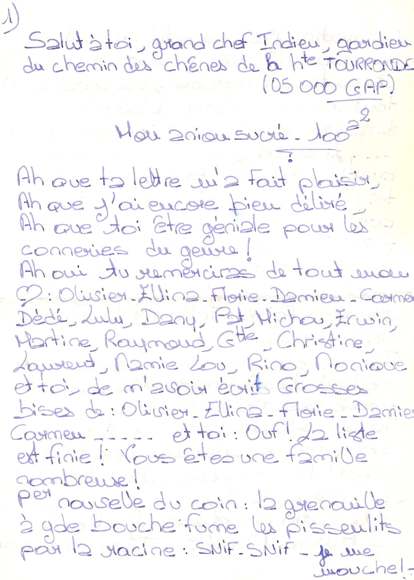 1)
Salut à toi, grand chef Indien, gardien
du chemin des chênes de la hte TOURRONDE
(05 000 GAP)
Mon anion sucré - 100^a^2
?
Ah que ta lettre m'a fait plaisir,
Ah que j'ai encore bien déliré,
Ah que toi être géniale pour les
conneries du genre!
Ah oui tu remerciras de tout mon
♡: Olivier-Elina-Florie-Damien-Carmen
Dédé, Lulu, Dany, Pat, Michou, Erwin,
Martine, Raymond, Gtte, Christine,
Laurent, Mamie Lou, Rino, Monique
et toi, de m'avoir écrit Grosses
bises de: Olivier-Elina-Florie-Damien
Carmen _ _ _ _ _ et toi: Ouf! La liste
est finie! Vous êtes une famille
nombreuse!
per nouvelle du coin: la grenouille
à gde bouche fume les pissenlits
par la racine: SNIF-SNIF- je me
mouche!-